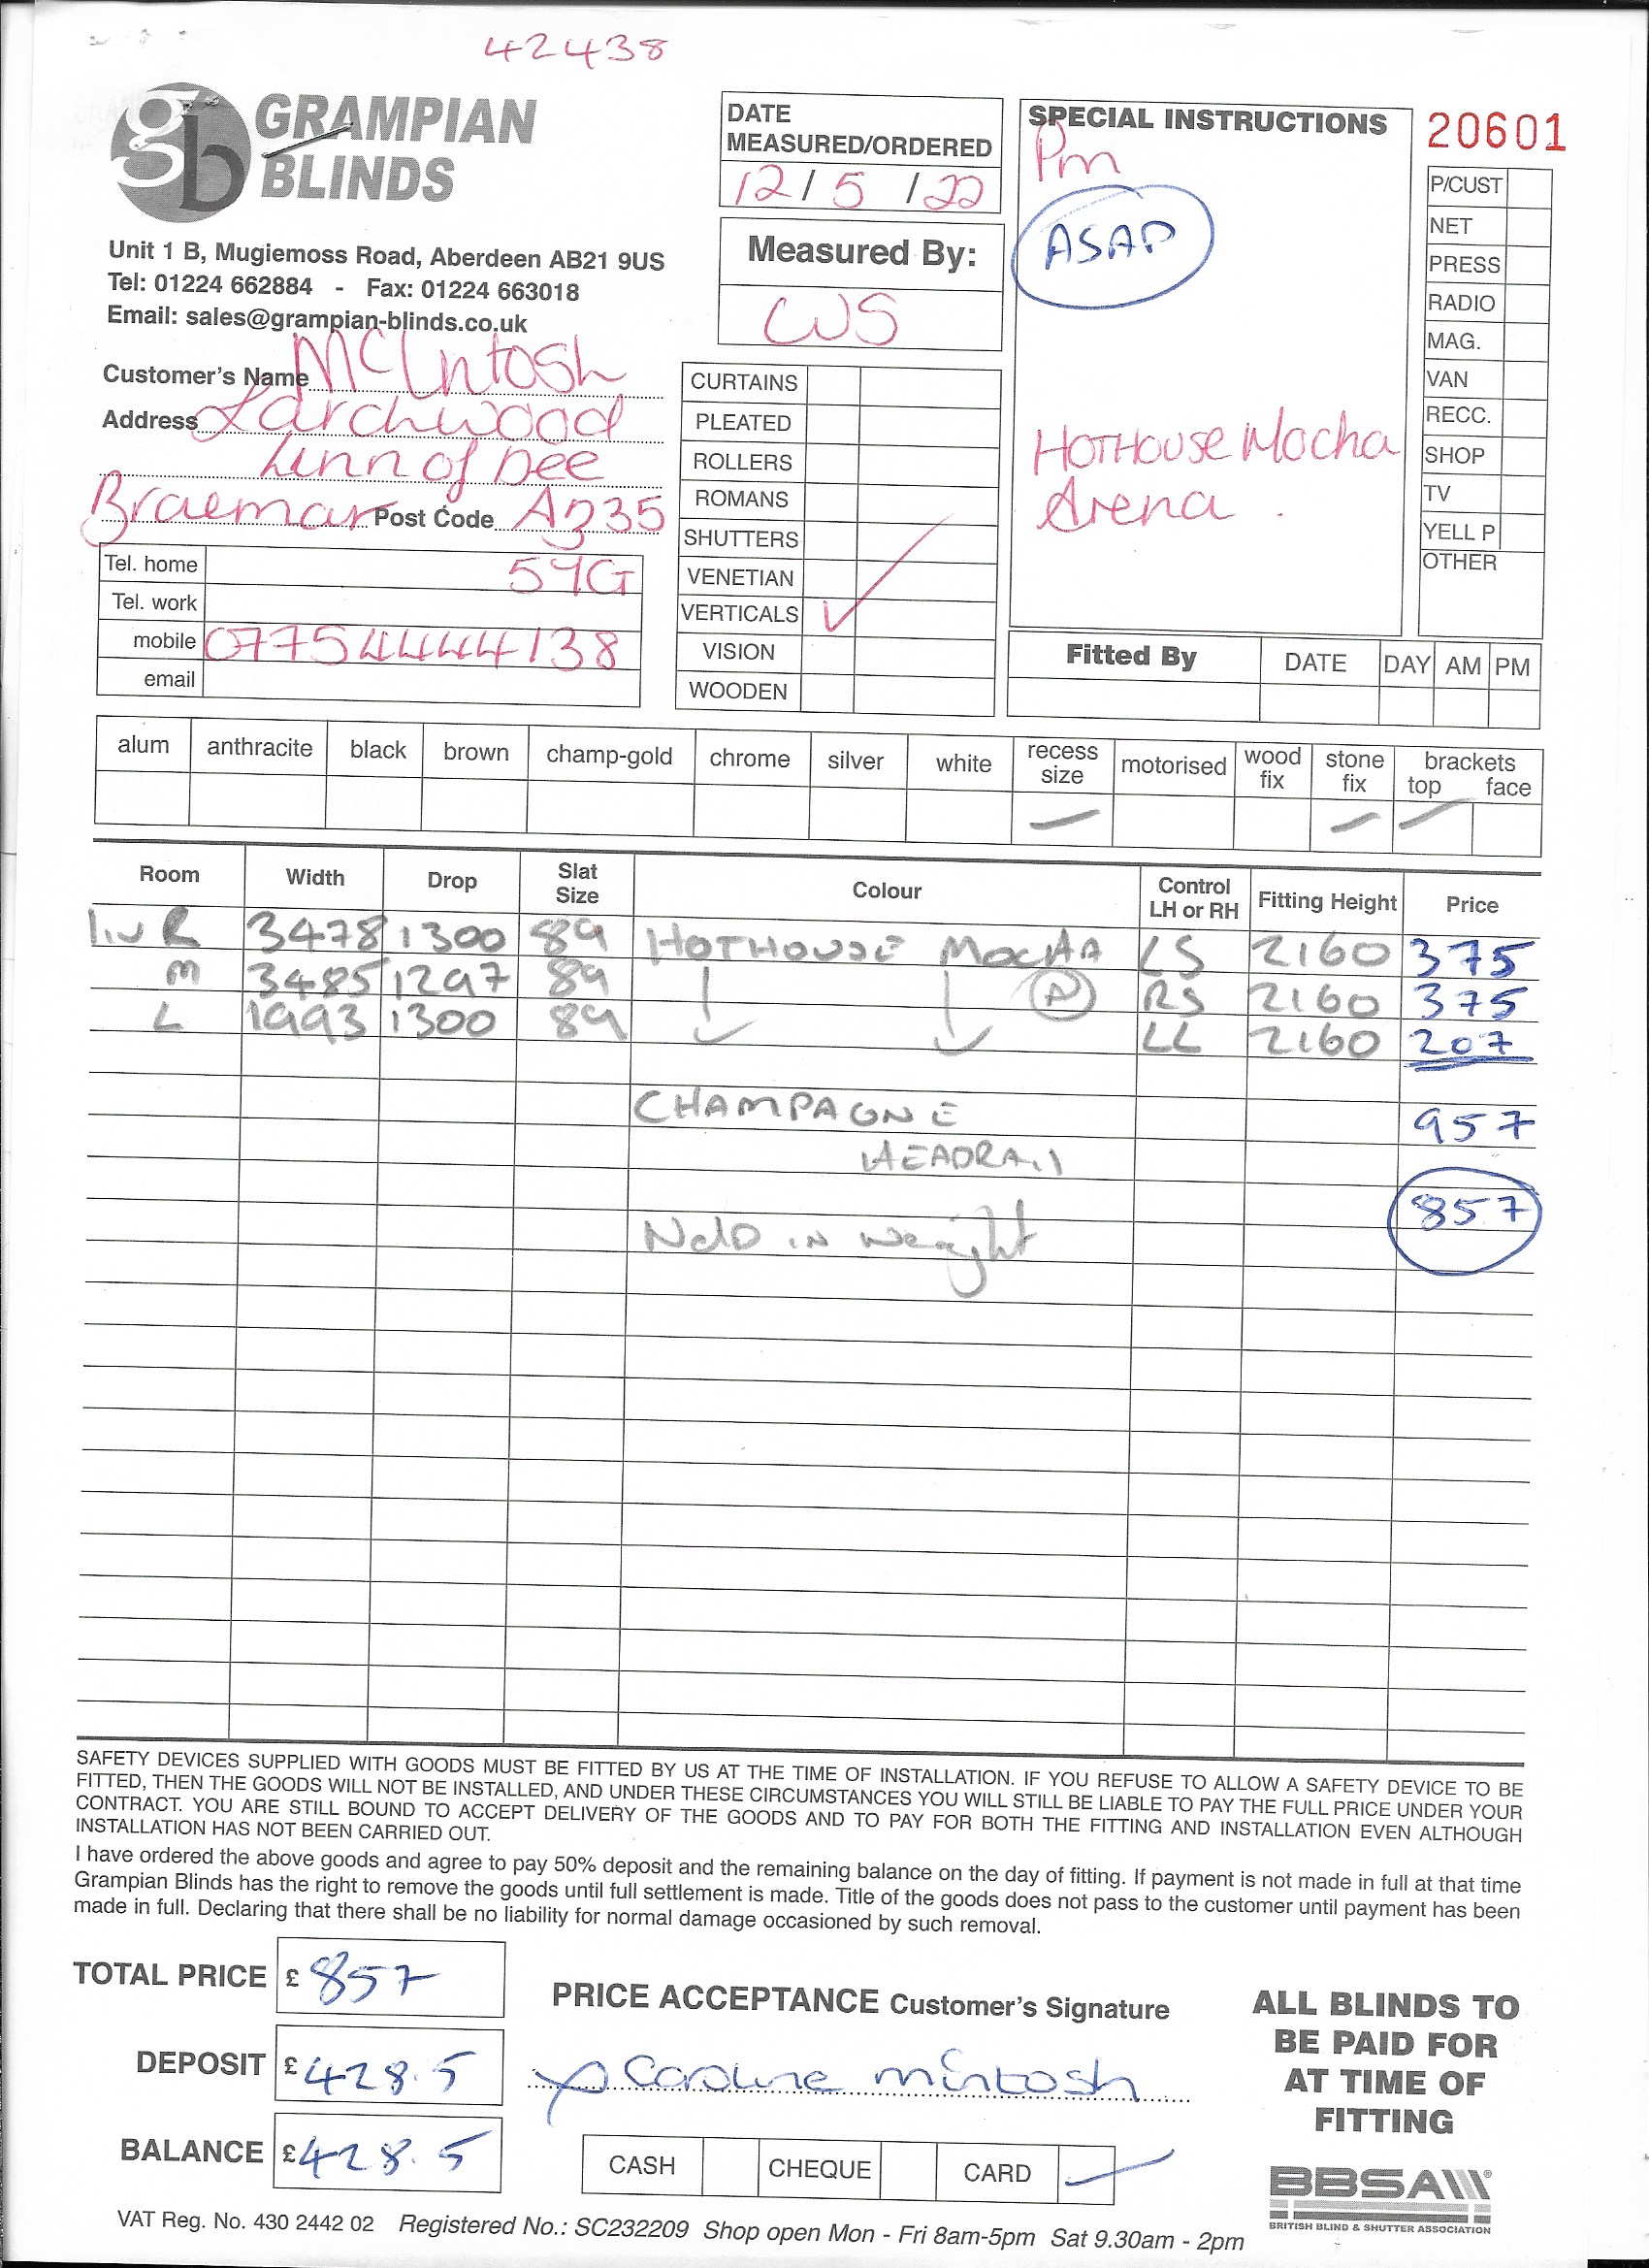 42438
gb GRAMPIAN
BLINDS
Unit 1 B, Mugiemoss Road, Aberdeen AB21 9US
Tel: 01224 662884 - Fax: 01224 663018
Email: sales@grampian-blinds.co.uk
Customer's Name McIntosh
Address Larchwood
Linn of Dee
Braemar Post Code AB35
Tel. home 5YG
Tel. work
mobile 07754444138
email
DATE
MEASURED/ORDERED
12/5/22
Measured By:
WS
CURTAINS
PLEATED
ROLLERS
ROMANS
SHUTTERS
VENETIAN
VERTICALS ✓
VISION
WOODEN
SPECIAL INSTRUCTIONS
Pm
ASAP
HOTHOUSE Mocha
Arena.
20601
P/CUST
NET
PRESS
RADIO
MAG.
VAN
RECC.
SHOP
TV
YELL P
OTHER
Fitted By DATE DAY AM PM
alum anthracite black brown champ-gold chrome silver white recess size motorised wood fix stone fix brackets top face
Room Width Drop Slat Size Colour Control LH or RH Fitting Height Price
Liv R 3478 1300 89 HOTHOUSE MOCHA LS 2160 375
M 3485 1297 89 (A) RS 2160 375
L 1993 1300 89 LL 2160 207
CHAMPAGNE 957
HEADRAIL
857
in weight
SAFETY DEVICES SUPPLIED WITH GOODS MUST BE FITTED BY US AT THE TIME OF INSTALLATION. IF YOU REFUSE TO ALLOW A SAFETY DEVICE TO BE
FITTED, THEN THE GOODS WILL NOT BE INSTALLED, AND UNDER THESE CIRCUMSTANCES YOU WILL STILL BE LIABLE TO PAY THE FULL PRICE UNDER YOUR
CONTRACT. YOU ARE STILL BOUND TO ACCEPT DELIVERY OF THE GOODS AND TO PAY FOR BOTH THE FITTING AND INSTALLATION EVEN ALTHOUGH
INSTALLATION HAS NOT BEEN CARRIED OUT.
I have ordered the above goods and agree to pay 50% deposit and the remaining balance on the day of fitting. If payment is not made in full at that time
Grampian Blinds has the right to remove the goods until full settlement is made. Title of the goods does not pass to the customer until payment has been
made in full. Declaring that there shall be no liability for normal damage occasioned by such removal.
TOTAL PRICE £ 857
DEPOSIT £ 428.5
BALANCE £ 428.5
PRICE ACCEPTANCE Customer's Signature
Caroline McIntosh
CASH CHEQUE CARD ✓
ALL BLINDS TO
BE PAID FOR
AT TIME OF
FITTING
BBSA
BRITISH BLIND & SHUTTER ASSOCIATION
VAT Reg. No. 430 2442 02 Registered No.: SC232209 Shop open Mon - Fri 8am-5pm Sat 9.30am - 2pm